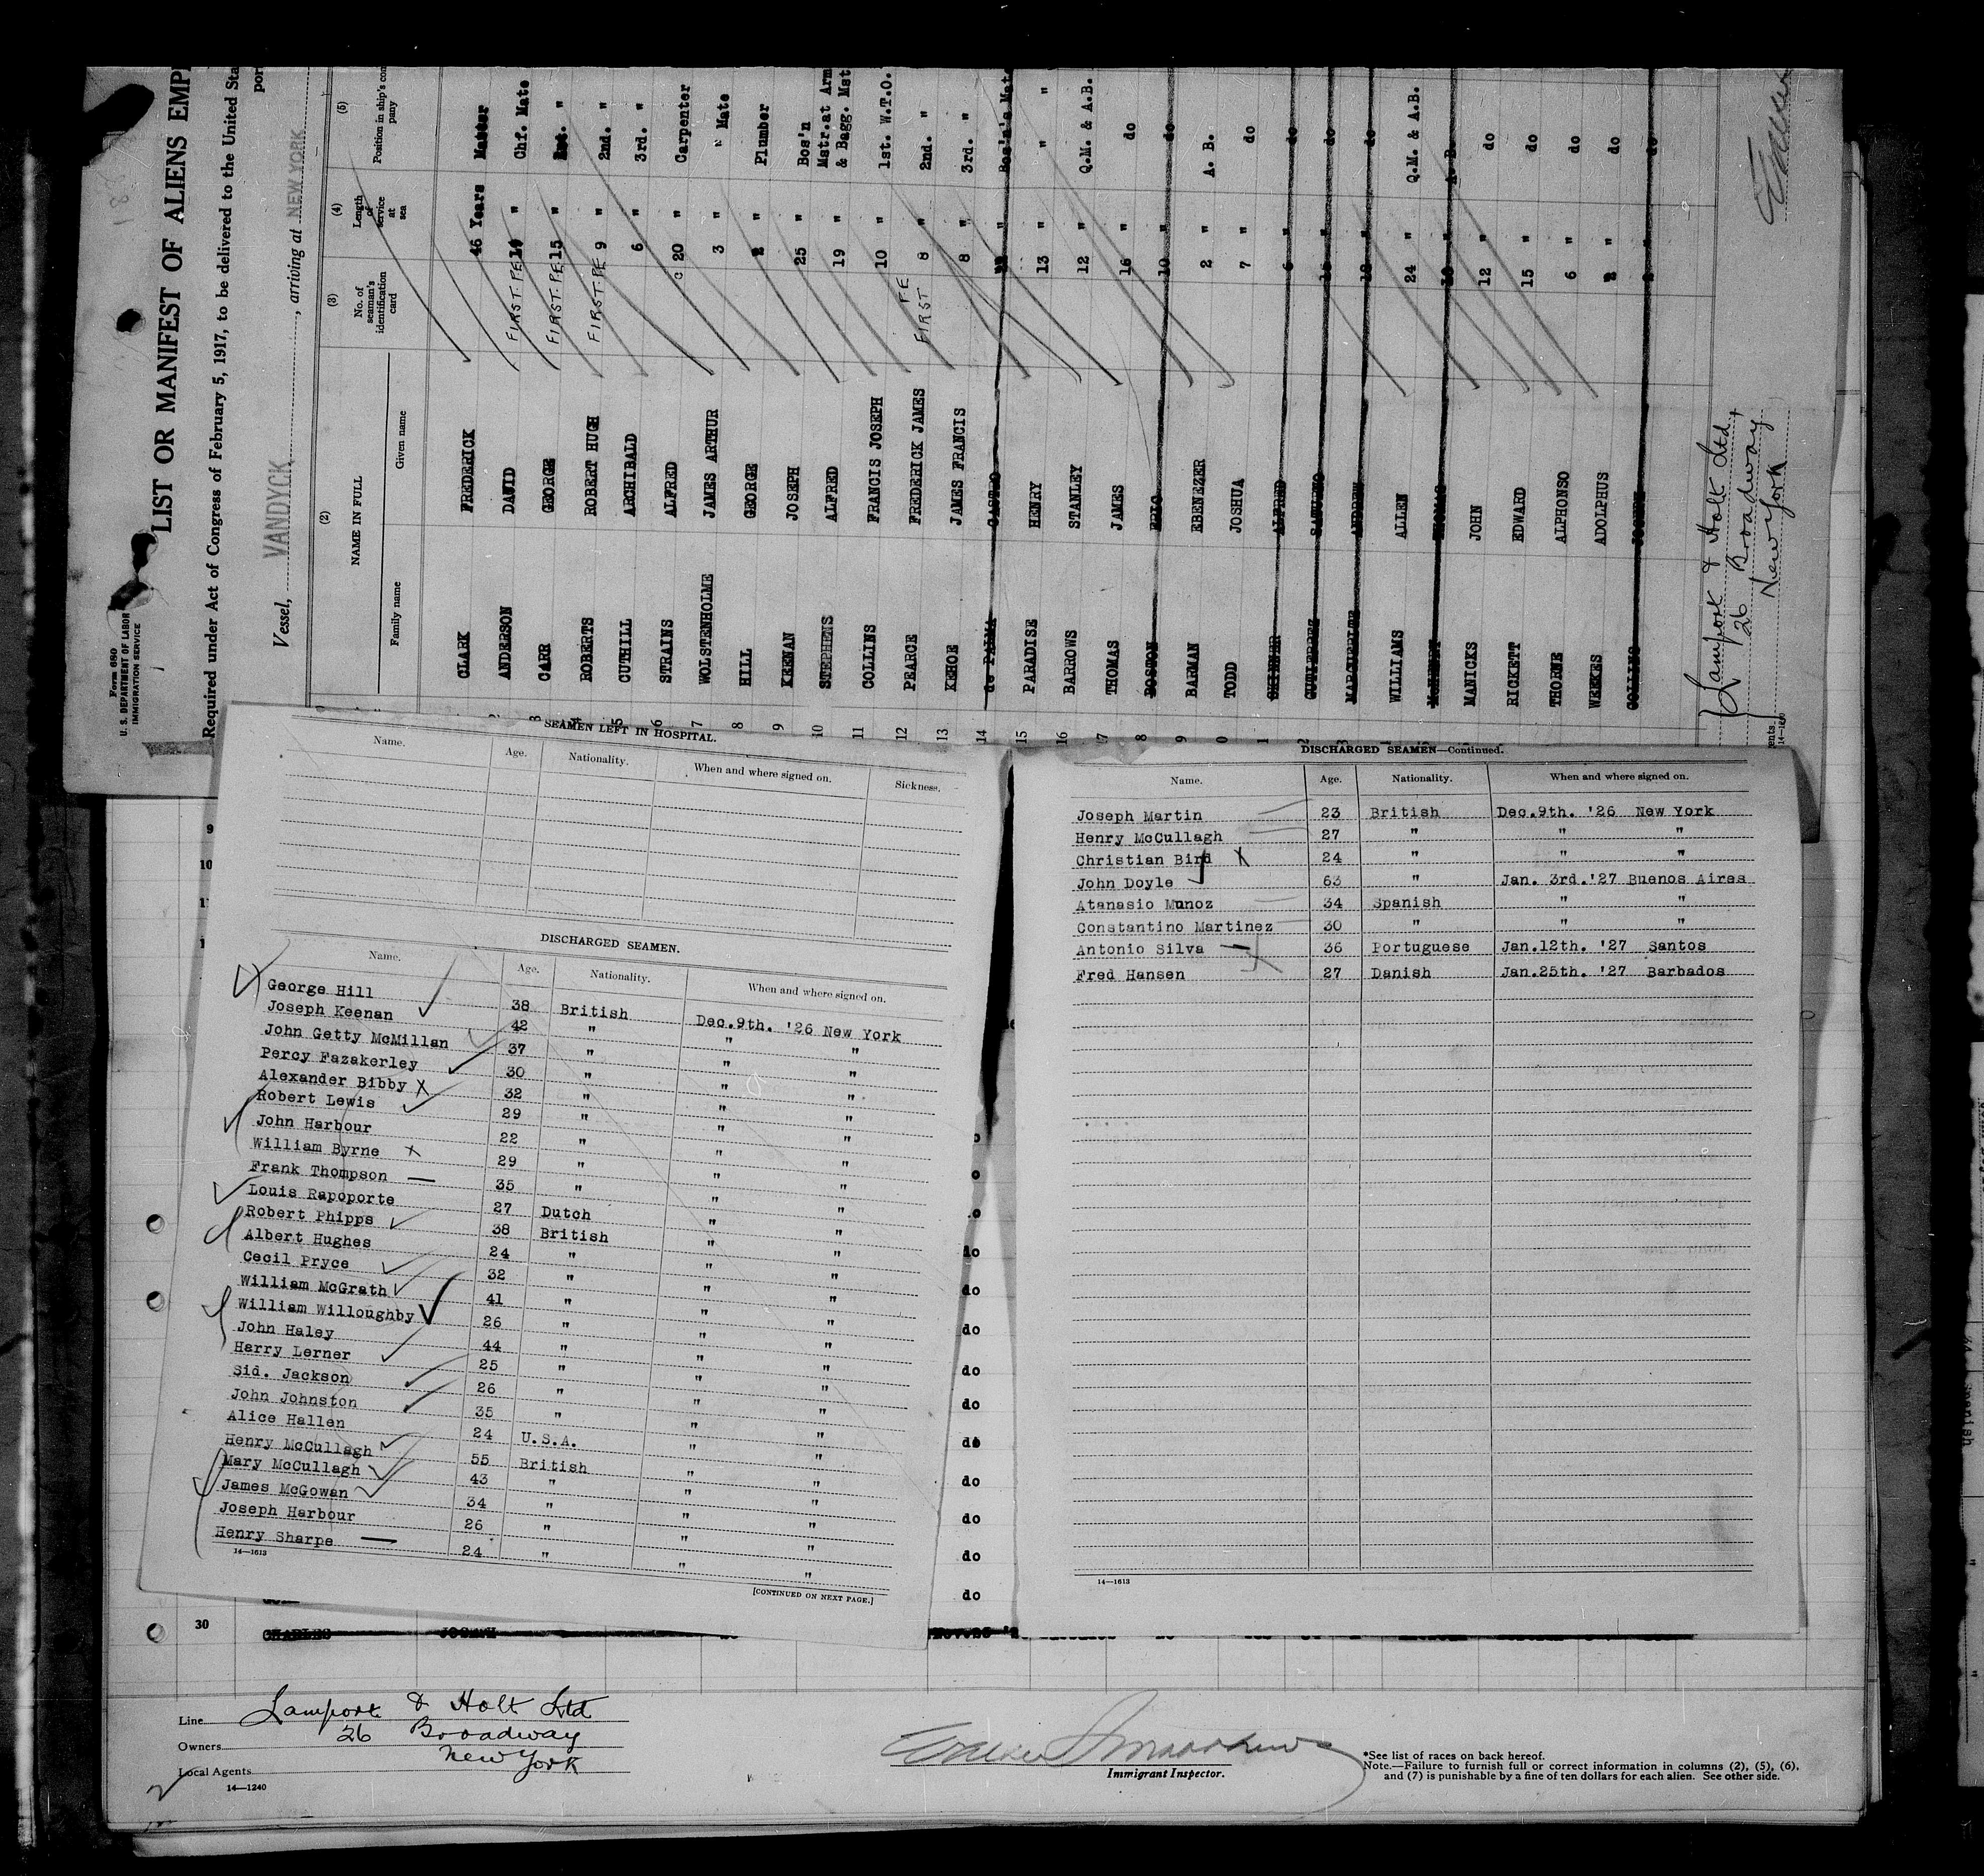 Form 680
U. S. DEPARTMENT OF LABOR
IMMIGRATION SERVICE
LIST OR MANIFEST OF ALIENS EMP
Required under Act of Congress of February 5, 1917, to be delivered to the United Sta
por
Vessel, VANDYCK, arriving at NEW YORK
(2) (3) (4) (5)
NAME IN FULL No. of seaman's identification card Length of service at sea Position in ship's com pany
Family name Given name
CLARK FREDERICK 46 Years Master
ANDERSON DAVID FIRST. PE " Chf. Mate
3 CARR GEORGE FIRST. PE 15 " "
4 ROBERTS ROBERT HUGH FIRST. PE 9 " 2nd. "
5 CUTHILL ARCHIBALD 6 " 3rd. "
6 STRAINS ALFRED 20 " Carpenter
7 WOLSTENHOLME JAMES ARTHUR 3 " " Mate
8 HILL GEORGE 2 " Plumber
9 KEENAN JOSEPH 25 " Bos'n
10 STEPHENS ALFRED 19 " Mstr.at Arm & Bagg. Mst
11 COLLINS FRANCIS JOSEPH 10 " 1st. W.T.O.
12 PEARCE FREDERICK JAMES FIRST FE 8 " 2nd. "
13 KEHOE JAMES FRANCIS 8 " 3rd. "
14 de PALMA CASTRO " Bos'n's Mate
15 PARADISE HENRY 13 " " "
16 BARROWS STANLEY 12 " Q.M. & A.B.
17 THOMAS JAMES 16 " do
8 BOSTON 10 " do
9 BARMAN EBENEZER 2 " A. B.
0 TODD JOSHUA 7 " do
1 ALFRED 6 " do
2 GUTIERREZ " do
3 ANDREW " do
WILLIAMS ALLEN 24 " Q.M. & A.B.
THOMAS " A. B.
MANICKS JOHN 12 " do
RICKETT EDWARD 15 " do
THORNE ALPHONSO 6 " do
WEEKES ADOLPHUS 2 " do
COLLINS JOSEPH " do
Lamport & Holt Ltd,
26 Broadway,
New York
ents
14—1240
SEAMEN LEFT IN HOSPITAL.
Name. Age. Nationality. When and where signed on. Sickness.
DISCHARGED SEAMEN.
Name. Age. Nationality. When and where signed on.
George Hill 38 British Dec.9th. '26 New York
Joseph Keenan 42 " " "
John Getty McMillan 37 " " "
Percy Fazakerley 30 " " "
Alexander Bibby X 32 " " "
Robert Lewis 29 " " "
John Harbour 22 " " "
William Byrne x 29 " " "
Frank Thompson 35 " " "
Louis Rapoporte 27 Dutch " "
Robert Phipps 38 British " "
Albert Hughes 24 " " "
Cecil Pryce 32 " " "
William McGrath 41 " " "
William Willoughby 26 " " "
John Haley 44 " " "
Harry Lerner 25 " " "
Sid. Jackson 26 " " "
John Johnston 35 " " "
Alice Hallen 24 U.S.A. " "
Henry McCullagh 55 British " "
Mary McCullagh 43 " " "
James McGowan 34 " " "
Joseph Harbour 26 " " "
Henry Sharpe 24 " " "
14—1613
[CONTINUED ON NEXT PAGE.]
DISCHARGED SEAMEN—Continued.
Name. Age. Nationality. When and where signed on.
Joseph Martin 23 British Dec.9th. '26 New York
Henry McCullagh 27 " " "
Christian Bird X 24 " " "
John Doyle 63 " Jan. 3rd.'27 Buenos Aires
Atanasio Munoz 34 Spanish " "
Constantino Martinez 30 " " "
Antonio Silva 36 Portuguese Jan.12th. '27 Santos
Fred Hansen 27 Danish Jan.25th. '27 Barbados
14—1613
9
10
do
do
do
do
do
do
do
do
do
do
30 CHARLES JOSEPH
Line Lamport & Holt Ltd
Owners 26 Broadway
Local Agents New York
14—1240
Immigrant Inspector.
*See list of races on back hereof.
Note.—Failure to furnish full or correct information in columns (2), (5), (6),
and (7) is punishable by a fine of ten dollars for each alien. See other side.
Spanish